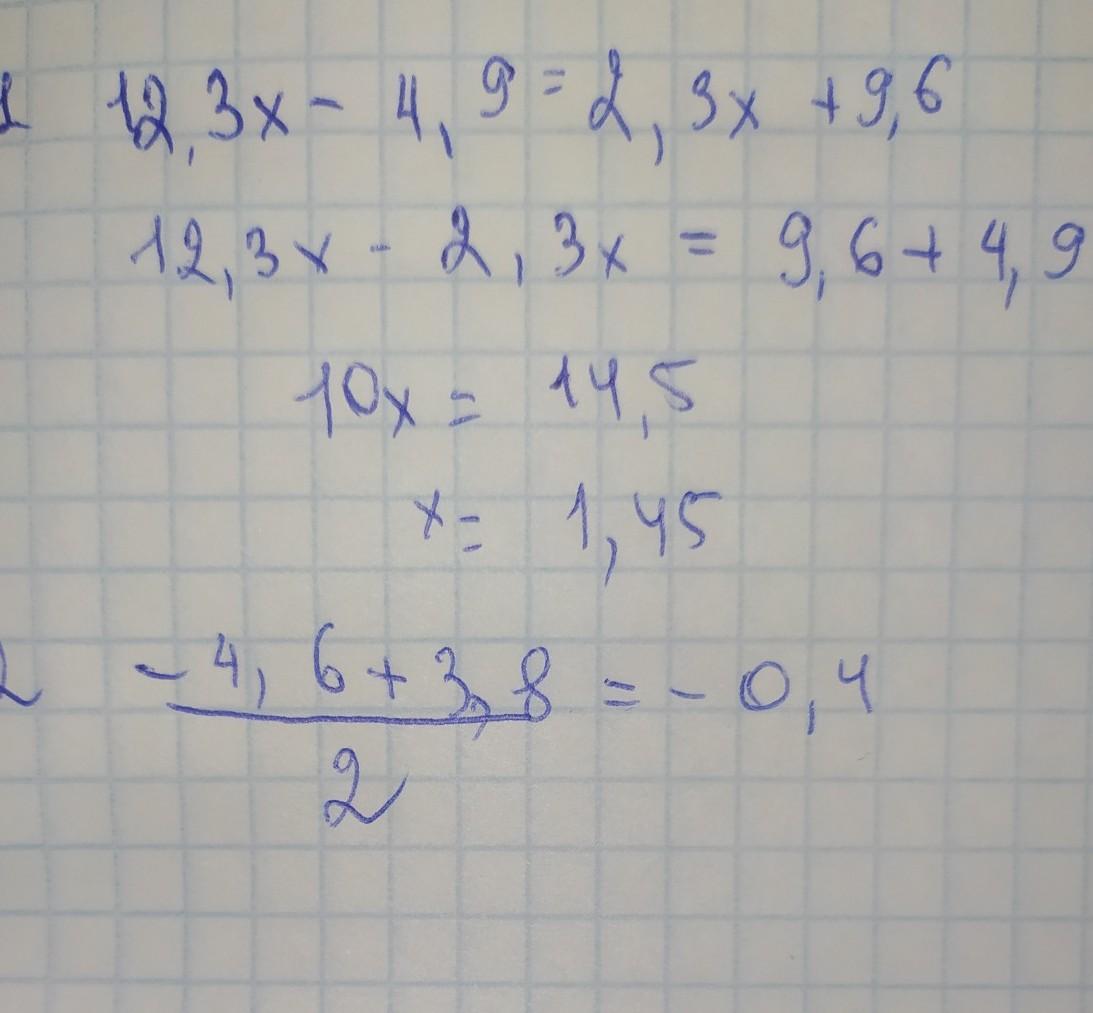 1 12,3x - 4,9 = 2,3x + 9,6
12,3x - 2,3x = 9,6 + 4,9
10x = 14,5
x = 1,45
2 -4,6 + 3,8 = - 0,4
2